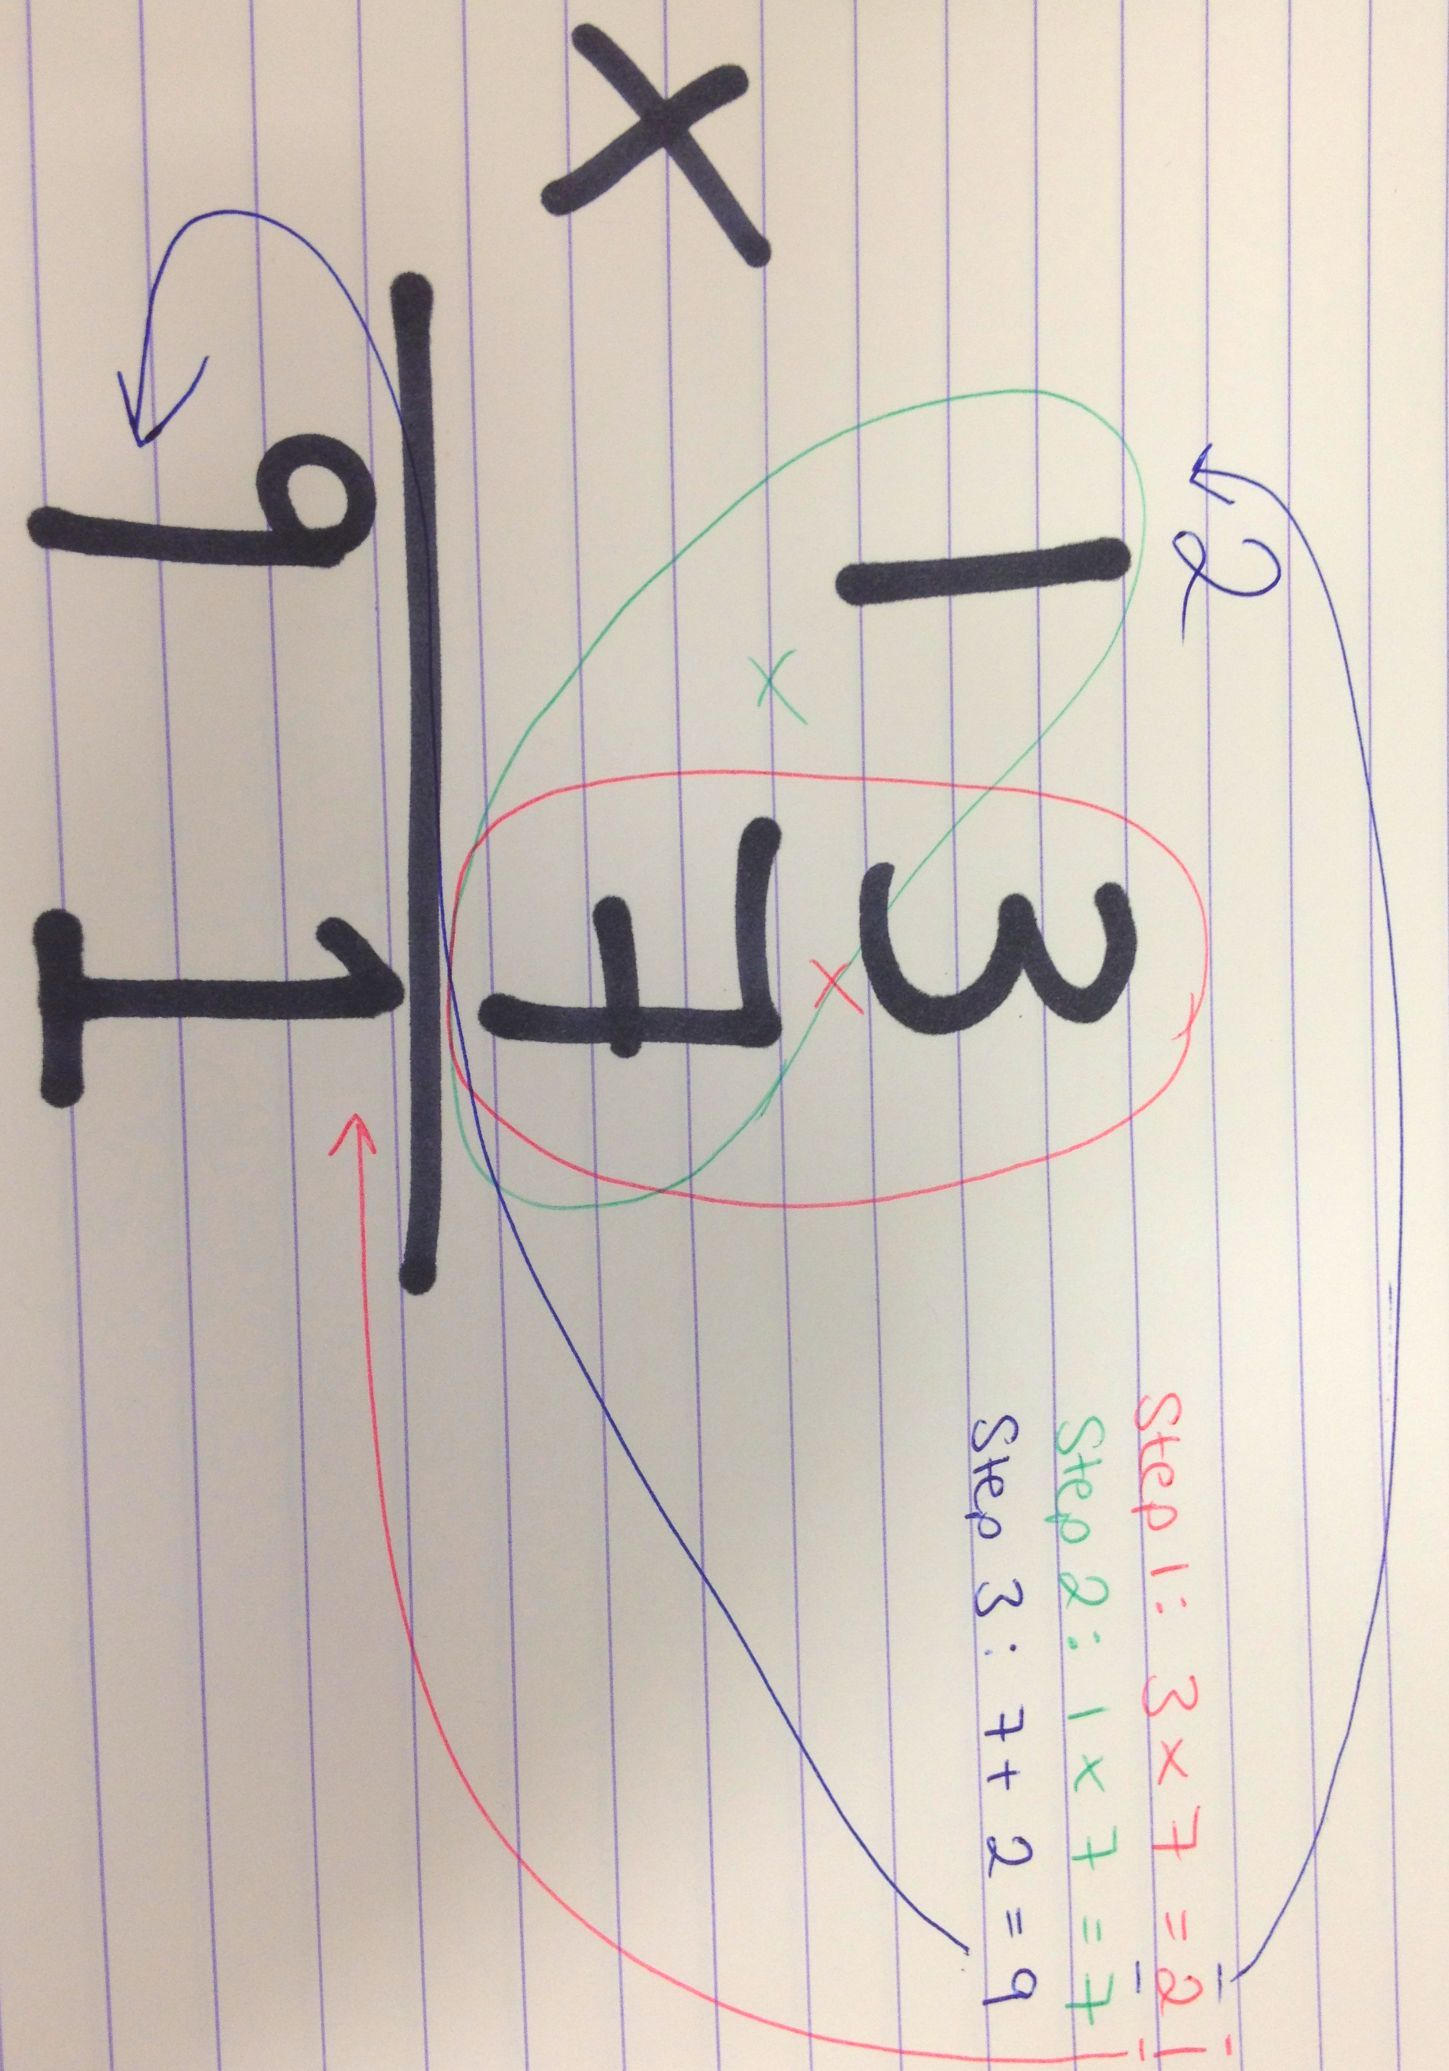 2
13
x 7
91
Step 1: 3 x 7 = 21
Step 2: 1 x 7 = 7
Step 3: 7 + 2 = 9
x
x